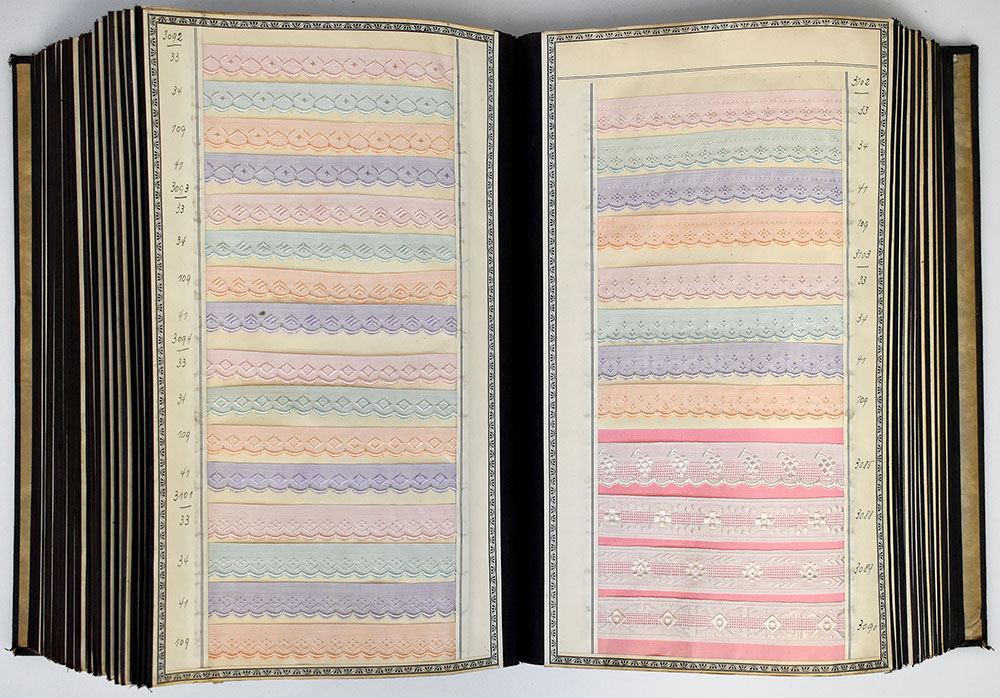 3092
33
34
109
41
3093
33
34
109
41
3094
33
34
109
41
3101
33
34
41
109
3102
33
34
41
109
3103
33
34
41
109
3085
3088
3089
3090